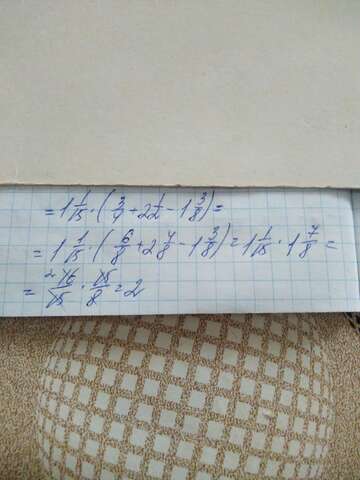 = 1 1/15 · (3/4 + 2 1/2 - 1 3/8) =
= 1 1/15 · (6/8 + 2 4/8 - 1 3/8) = 1 1/15 · 1 7/8 =
= 16/15 · 15/8 = 2